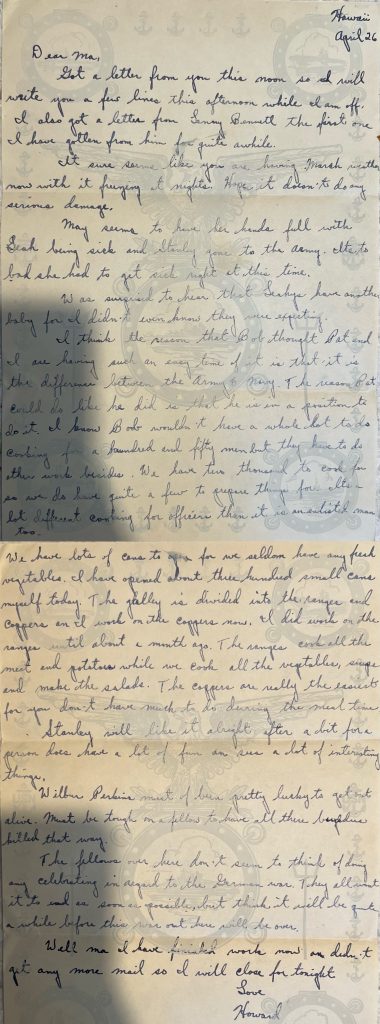 Hawaii
April 26
Dear Ma,
Got a letter from you this noon so I will
write you a few lines this afternoon while I am off.
I also got a letter from Bennett the first one
I have gotten from him for quite awhile.
It sure seems like you are having Marsh weather
now with it freezing at nights. Hope it doesn't do any
serious damage.
May seems to have her hands full with
Leah being sick and Stanly gone to the Army. Its to
bad she had to get sick right at this time.
Was surprised to hear that have another
baby for I didn't even know they were expecting.
I think the reason that Bob thought Pat and
I are having such an easy time of it is that it is
the difference between the Army & Navy. The reason Pat
could do like he did is that he is in a position to
do it. I know Bob wouldn't have a whole lot to do
cooking for a hundred and fifty men but they have to do
other work besides. We have two thousand to cook for
so we do have quite a few to prepare things for. Its a
lot different cooking for officers than it is an enlisted man
too.
We have lots of cans to open for we seldom have any fresh
vegetables. I have opened about three hundred small cans
myself today. The galley is divided into the ranges and
coppers an I work on the coppers now. I did work on the
ranges until about a month ago. The ranges cook all the
meet and potatoes while we cook all the vegetables, soups
and make the salads. The coppers are really the easiest
for you don't have much to do durring the meal time
. Stanley will like it alright after a bit for a
person does have a lot of fun an sees a lot of interesting
things.
Wilbur Perkins must of been pretty lucky to get out
alive. Must be tough on a fellow to have all there buddies
killed that way.
The fellows over here don't seem to think of doing
any celebrating in regard to the German war. They all want
it to end as soon as possible, but think it will be quite
a while before this war out here will be over.
Well ma I have finished work now an didn't
get any more mail so I will close for tonight
Love
Howard